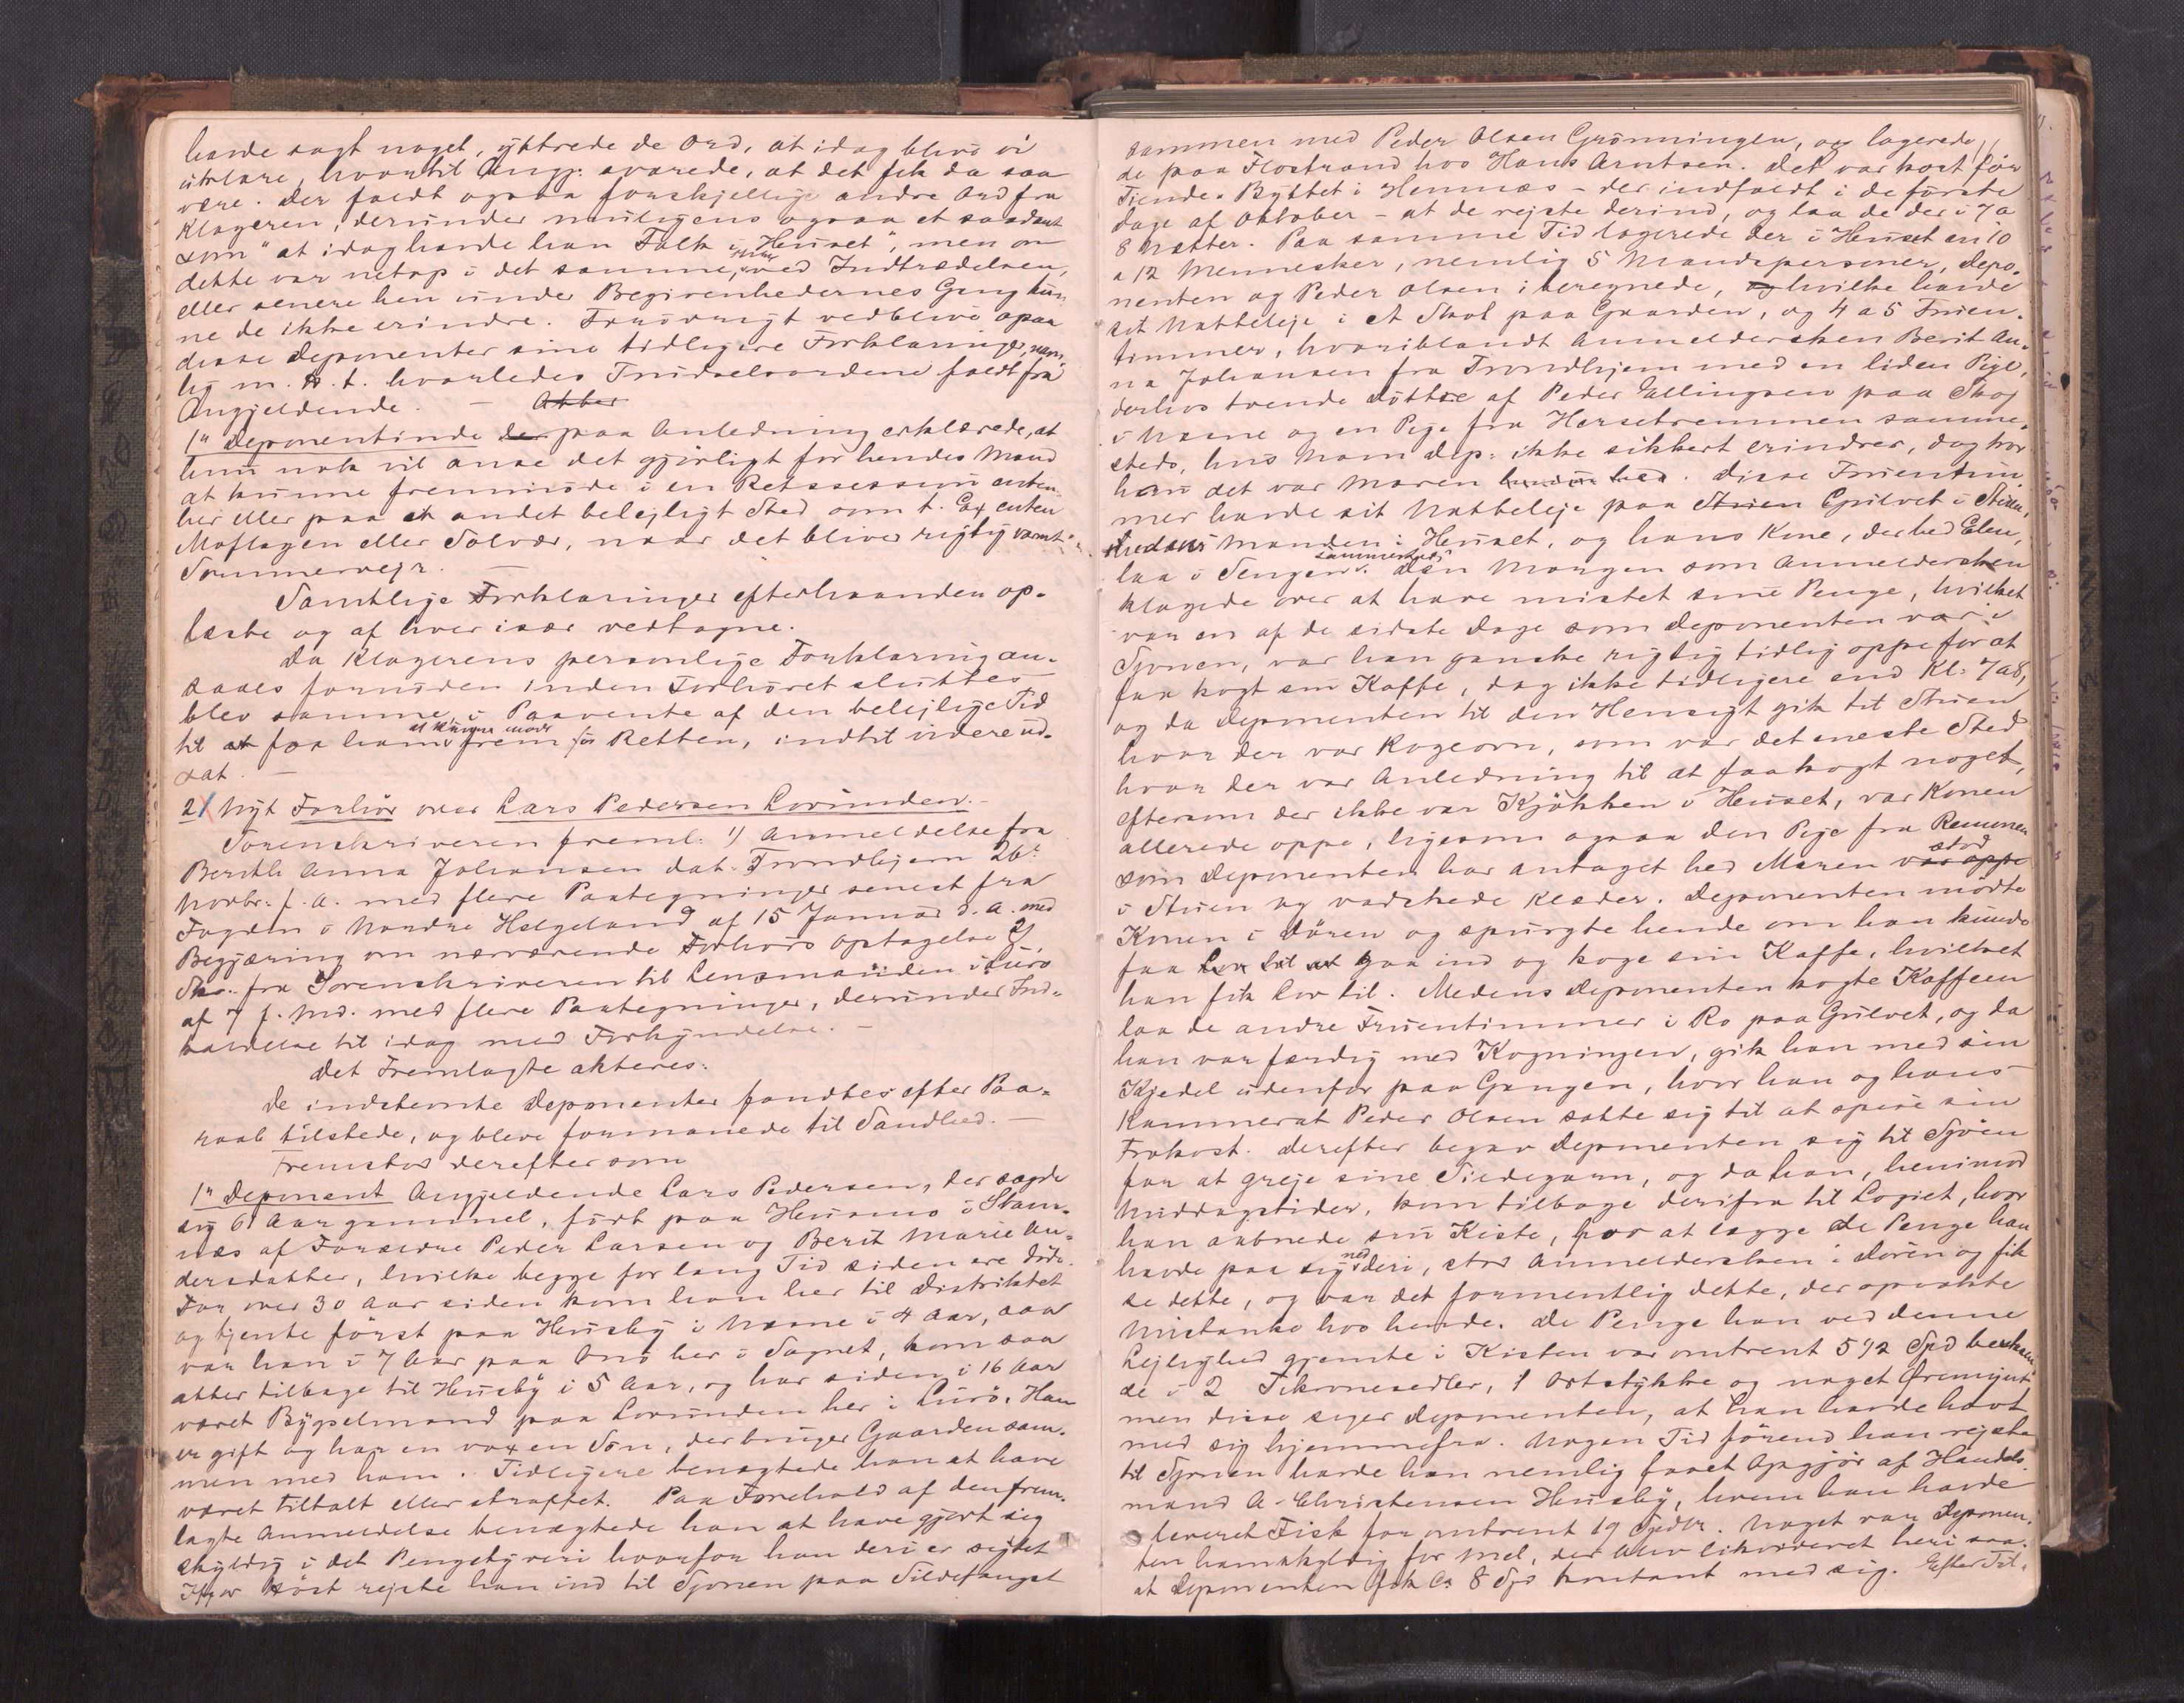 havde sagt noget, ÿttrede de Ord, at idag blive vi
uklare, hvortil Angj: svarede, at det fik da saa
være. Der faldt ogsaa forskjellige andre Ord fra
Klageren, derunder muligens ogsaa et saadant
som "at idag havde han Folk i Huset", men om
dette var netop i det samme, ved Indtrædelsen,
eller senere hen under Begivenhedernes Gang kun-
ne de ikke erindre. Forøvrigt vedblive ogsaa
disse Deponenter sine tidligere Forklaringer, nem-
lig m. H. t. hvorledes Trudselsordene faldt fra
Angjeldende. — Atter
1n Deponentinde der paa Anledning erklærede, at
hun nok vil anse det gjørligt for hendes Mand
at kunne fremmøde i en Retssession enten
her eller paa et andet belejligt Sted som t. Ex enten
Moflagen eller Solvær, naar det bliver rigtig varmt
Sommervejr. —
Samtlige Forklaringer efterhaanden op-
læste og af hver især vedtagne.
Da Klagerens personlige Forklaring an-
saaes fornøden inden Forhøret sluttes
blev samme i Paavente af den belejlige Tid
til at faa ham at kunne møde frem for Retten, indtil videre ud-
sat. —
2/ Nyt Forhør over Lars Pedersen Lovunden. -
Sorenskriveren freml: 1) Anmeldelse fra
Berith Anna Johansen dat. Trondhjem 26t
Novbr. f. A. med flere Paategninger senest fra
Fogden i Nordre Helgeland af 15 Januar d. A. med
Begjæring om nærværende Forhørs Optagelse 2)
Skr. fra Sorenskriveren til Lensmanden i Lurø
af 7 f. Md. med flere Paategninger, derunder Ind-
kaldelse til idag med Forkyndelse. —
Det Fremlagte akteres:
De indstevnte Deponenter fandtes efter Paa-
raab tilstede, og bleve formanede til Sandhed. —
Fremstod derefter som
1n Deponent Angjeldende Lars Pedersen, der sagde
sig 61 Aar gammel, født paa Husmo i Stam-
næs af Forældre Peder Larsen og Berit Marie An-
dersdatter, hvilke begge for lang Tid siden ere døde.
For over 30 Aar siden kom han her til Distriktet
og tjente først paa Husby i Næsne i 4 Aar, saa
var han i 7 Aar paa Onø her i Sognet, kom saa
atter tilbage til Husbÿ i 5 Aar, og har siden i 16 Aar
været Bÿgselmand paa Lovunden her i Lurø. Han
er gift og har en voxen Søn, der bruger Gaarden sam-
men med ham. Tidligere benægtede han at have
været tiltalt eller straffet. Paa Forehold af den frem-
lagte Anmeldelse benægtede han at have gjort sig
skyldig i det Pengetyveri hvorfor han deri er sigtet
Ifjor Høst rejste han ind til Sjonen paa Sildefangst
sammen med Peder Olsen Grønningen, og logerede
de paa Flostrand hos Hans Arntsen. Det var kort før
Tiende-Byttet i Hemnæs - der indfaldt i de første
Dage af Oktober - at de rejste derind, og laa de der i 7 a
8 Nætter. Paa samme Tid logerede der i Huset en 10
a 12 Mennesker, nemlig 5 Mandspersoner, Depo-
nenten og Peder Olsen iberegnede, og hvilke havde
sit Natteleje i et Skot paa Gaarden, og 4 a 5 Fruen-
timmer, hvoriblandt Anmeldersken Berit An-
na Johansen fra Trondhjem med en liden Pige,
derhos tvende Døttre af Peder Ellingsen paa Skog
i Næsne og en Pige fra Horsetremmen samme-
steds, hvis Navn Dep: ikke sikkert erindrer, dog tror
han det var Maren. Disse Fruentim-
mer havde sit Natteleje paa Stuen Gulvet i Stuen,
Manden i Huset, og hans Kone, der hed Elen,
laa i Sengen sammesteds. Den Morgen som Anmeldersken
klagede over at have mistet sine Penge, hvilket
var en af de sidste Dage som Deponenten var i
Sjonen, var han ganske rigtig tidlig oppe for at
faa kogt sin Kaffe, dog ikke tidligere end Kl: 7 a 8,
og da Deponenten til den Hensigt gik til Stuen
hvor der var Kogeovn, som var det eneste Sted
hvor der var Anledning til at faa kogt noget,
eftersom der ikke var Kjøkken i Huset, var Konen
allerede oppe, ligesom ogsaa den Pige fra Remmen
som Deponenten har antaget hed Maren var oppe stod
i Stuen og vadskede Klæder. Deponenten mødte
Konen i Døren og spurgte hende om han kunde
faa Lov til at gaa ind og koge sin Kaffe, hvilket
han fik Lov til. Medens Deponenten kogte Kaffeen
laa de andre Fruentimmer i Ro paa Gulvet, og da
han var færdig med Kogningen, gik han med sin
Kjedel udenfor paa Gangen, hvor han og hans
Kammerat Peder Olsen satte sig til at spise sin
Frokost. Derefter begav Deponenten sig til Sjøen
for at greje sine Sildegarn, og da han, henimod
Middagstider, kom tilbage derifra til Logiet, hvor
han aabnede sin Kiste, for at lægge de Penge han
havde paa sig ned deri, stod Anmeldersken i Døren og fik
se dette, og var det formentlig dette, der opvakte
Mistanke hos hende. De Penge han ved denne
Lejlighed gjemte i Kisten var omtrent 5 1/2 Spd bestaaen-
de i 2 Tikronesedler, 1 Ortstÿkke og noget Øremynt
men disse siger Deponenten, at han havde havt
med sig hjemmefra. Nogen Tid førend han rejste
til Sjonen havde han nemlig faaet Opgjør af Handels-
mand A. Christensen Husbÿ, hvem han havde
leveret Fisk for omtrent 19 Spdlr. Noget var Deponen-
ten ham skyldig for Mel, der blev likvideret heri saa-
at Deponenten fik Ca 8 Spd kontant med sig. Efter Til-